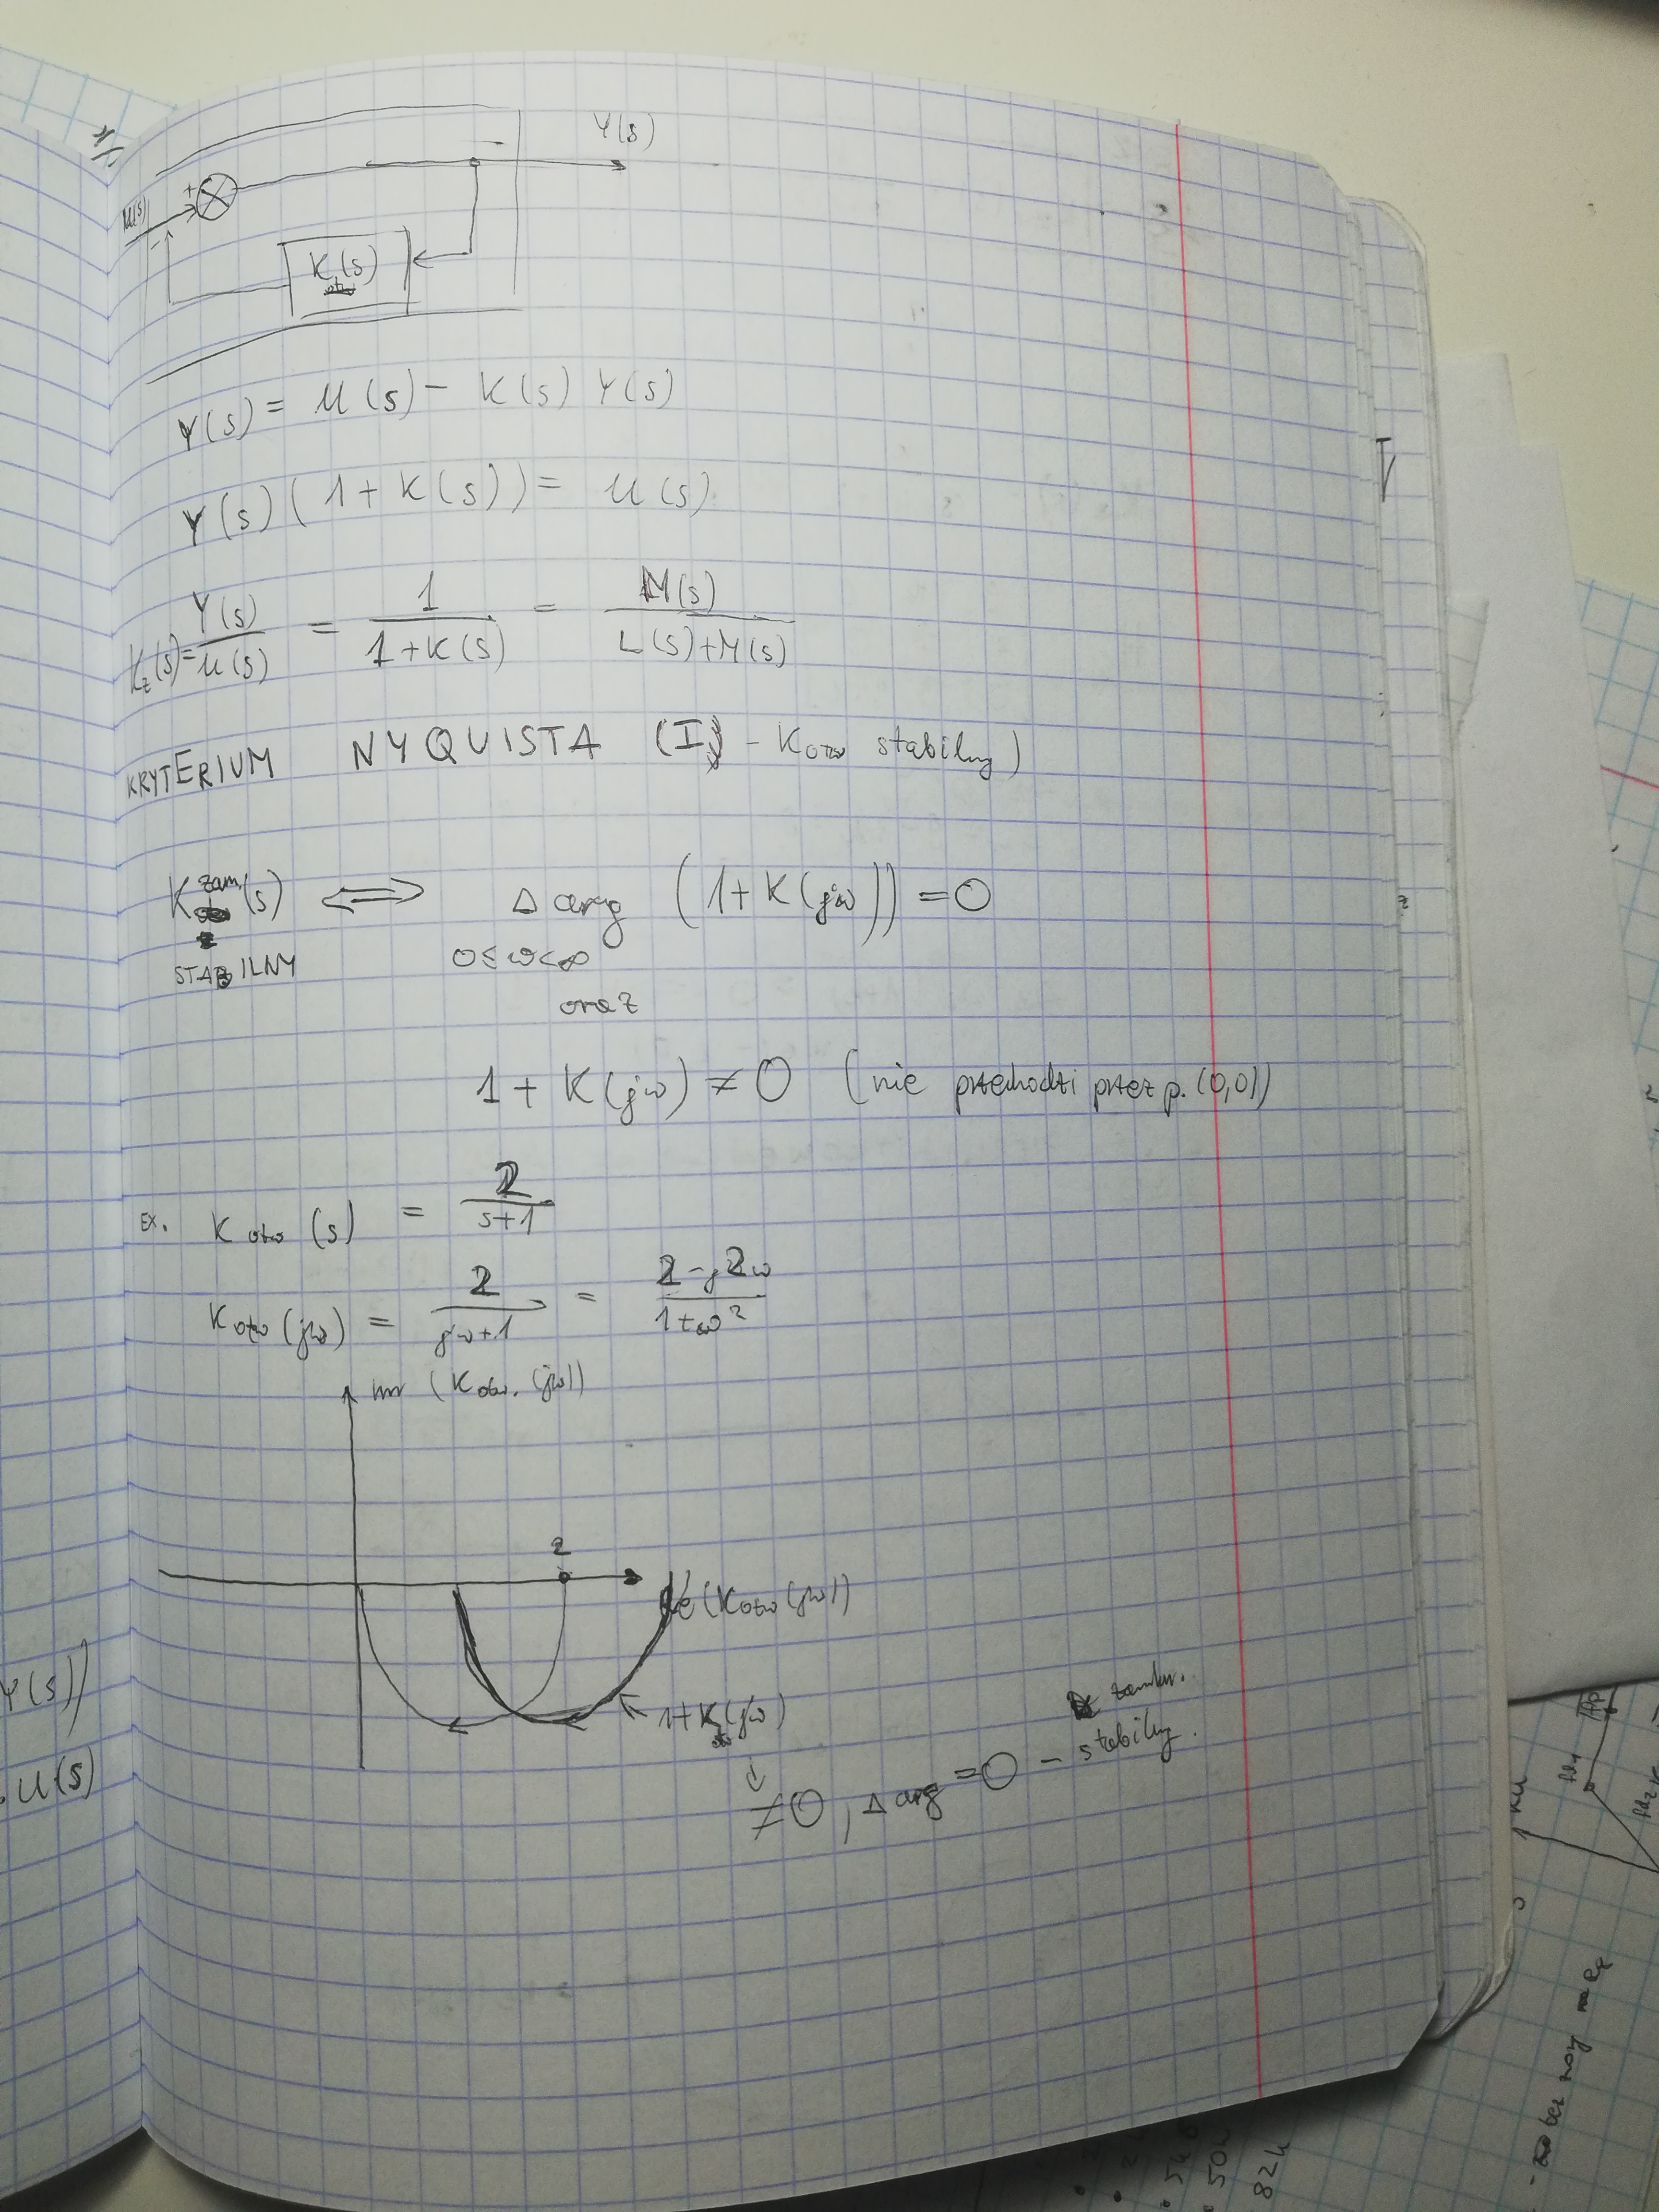 Y(s)
U(s) +
-
K(s)
otw
Y(s) = U(s) - K(s) Y(s)
Y(s) (1 + K(s)) = U(s)
Kz(s) = Y(s)/U(s) = 1/(1+K(s)) = M(s)/(L(s)+M(s))
KRYTERIUM NYQUISTA (I) - Kotw stabilny)
K zam. (s) ⟺ Δ arg (1 + K(jω)) = 0
STABILNY 0≤ω<∞
oraz
1 + K(jω) ≠ 0 (nie przechodzi przez p. (0,0))
EX. Kotw (s) = 2/(s+1)
Kotw (jω) = 2/(jω+1) = (2-j2ω)/(1+ω²)
Im (Kotw. (jω))
2
Re (Kotw (jω))
1+Kotw(jω)
≠0, Δ arg = 0 - stabilny.
Y(s))
. U(s)
50k
82k